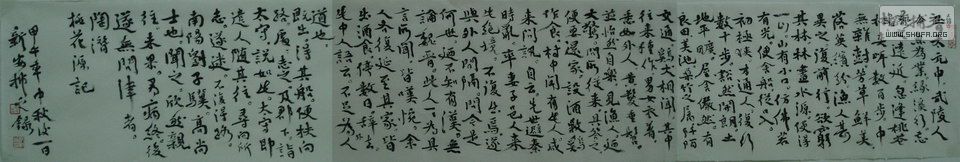 晋太元中武陵人
捕魚為業緣溪行忘
路之遠近忽逢桃花
林夾岸數百步中
無雜樹芳草鮮美
落英缤紛漁人甚
異之復前行欲窮
其林林盡水源便得
一山山有小口彷彿若
有光便舍船從口入
初極狹才通人復行
數十步豁然開朗土
地平曠屋舍儼然有
良田美池桑竹之屬阡陌
交通雞犬相聞其中
往來種作男女衣著
悉如外人黃髮垂髫
並怡然自樂見漁人乃
大驚問所從來具答之
便要還家設酒殺雞
作食村中聞有此人咸
來問訊自云先世避秦
時亂率妻子邑人
來此絕境不復出焉遂
與外人間隔問今是
何世乃不知有漢無
論魏晉此人一一為具
言所聞皆嘆惋餘
人各復延至其家皆
出酒食停數日辭去
此中人語云不足為外人
道也
既出得其船便扶向
路處處志之及郡下詣
太守說如此太守即
遣人隨其往尋向所
志遂迷不復得路
南陽劉子驥高尚
士也聞之欣然親
往未果尋病終後
遂無問津者
陶潛
桃花源記
甲午年中秋後一日
新安
錄
WWW.SHUFA.ORG